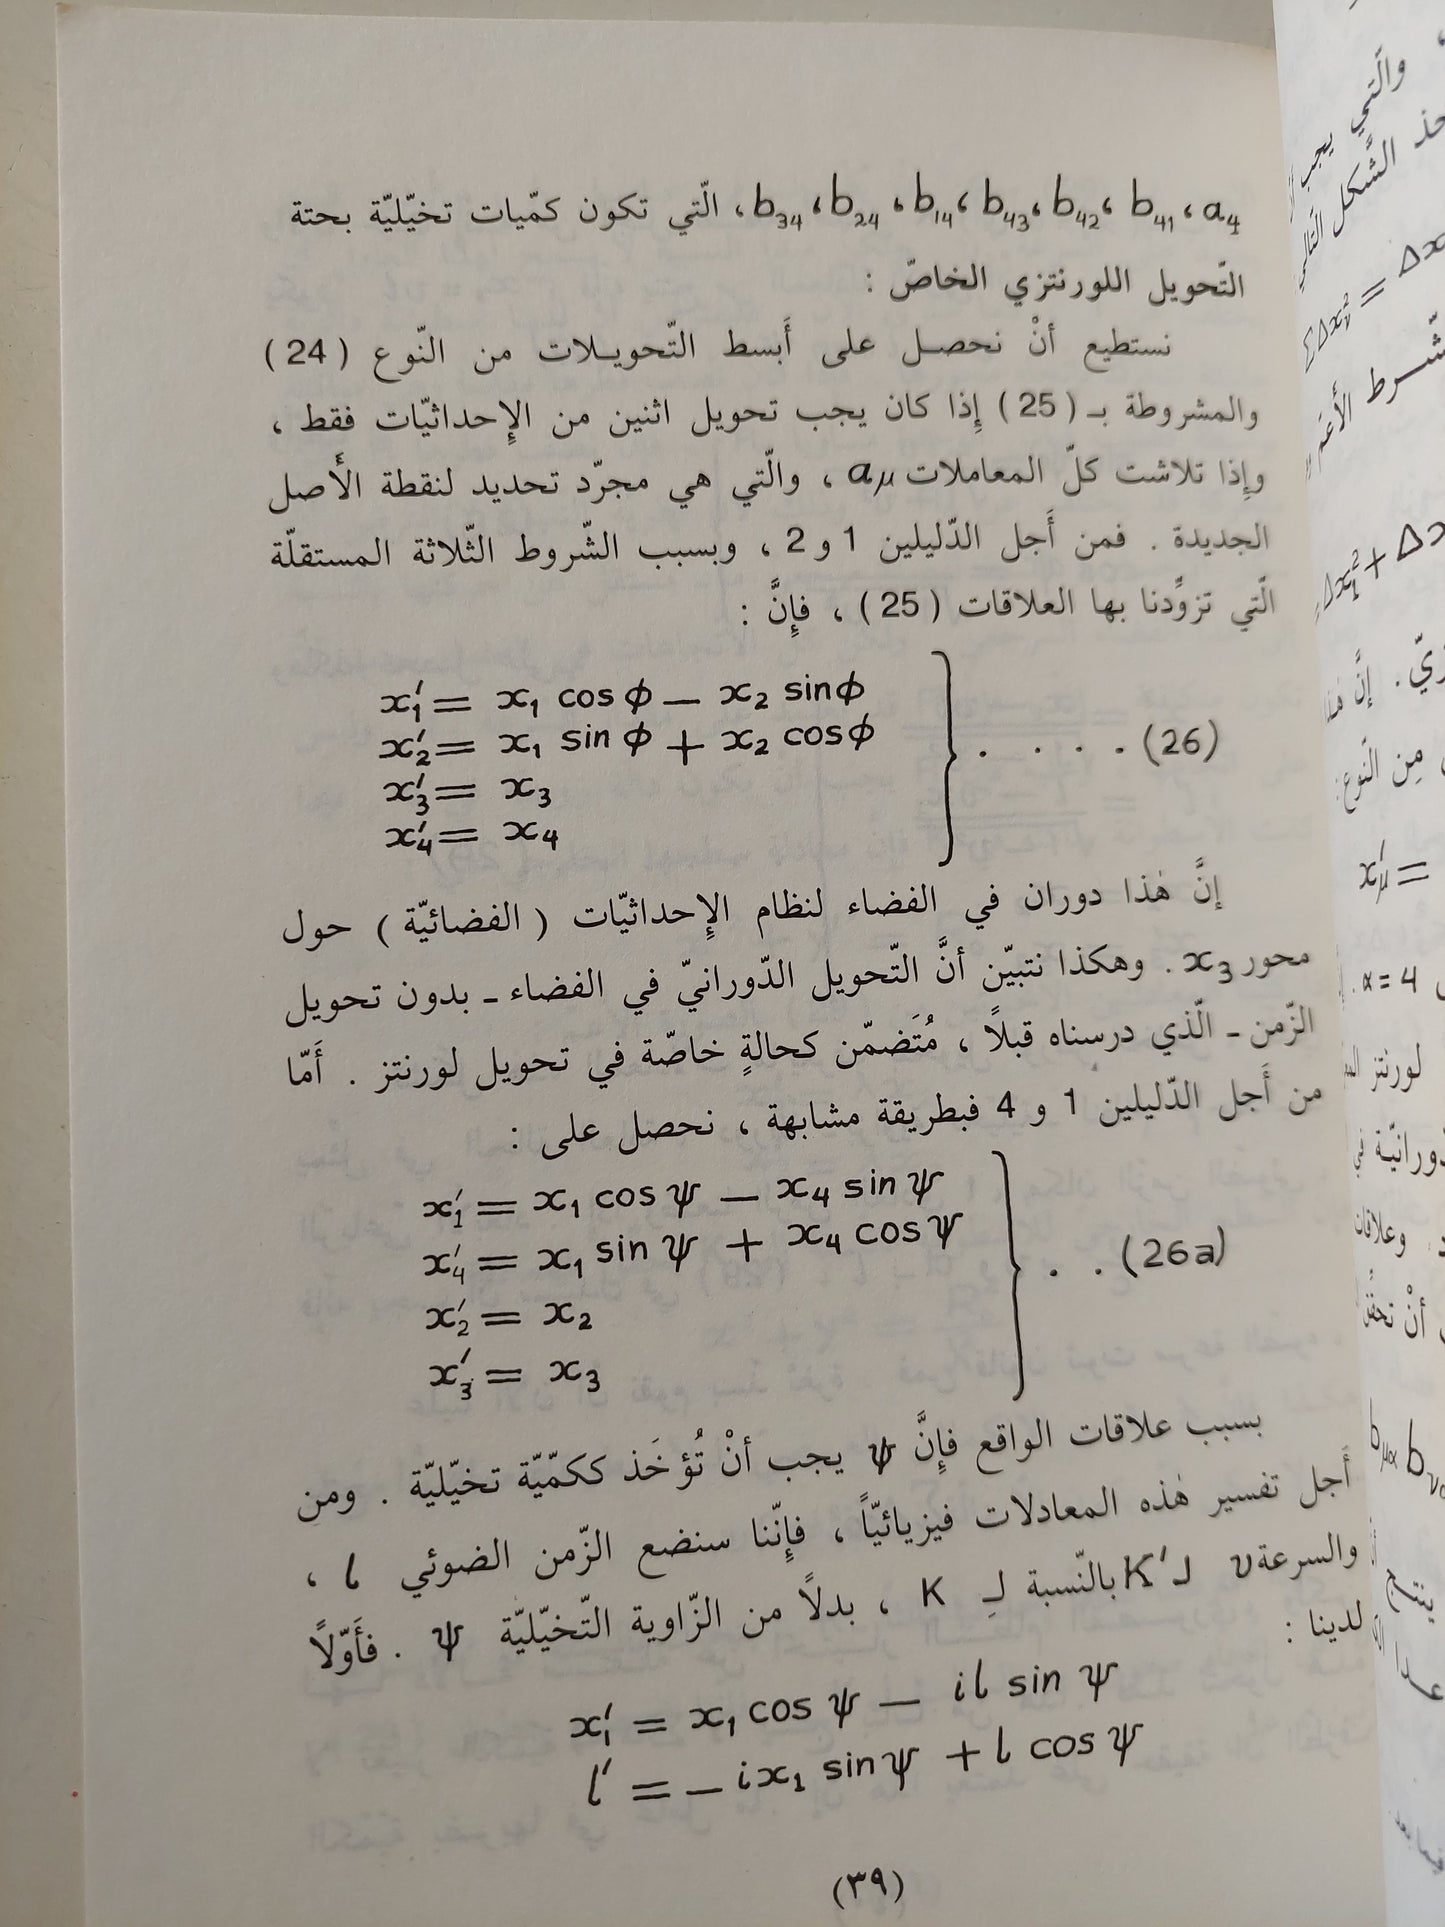 a₄ ، b₄₁ ، b₄₂ ، b₄₃ ، b₁₄ ، b₂₄ ، b₃₄ ، الّتي تكون كمّيات تخيّليّة بحتة
التّحويل اللورنتزي الخاصّ :
نستطيع أنْ نحصل على أَبسط التّحويلات من النّوع ( 24 )
والمشروطة بـ ( 25 ) إِذا كان يجب تحويل اثنين من الإِحداثيّات فقط ،
وإِذا تلاشت كلّ المعاملات aμ ، والّتي هي مجرّد تحديد لنقطة الأَصل
الجديدة . فمن أَجل الدّليلين 1 و 2 ، وبسبب الشّروط الثّلاثة المستقلّة
الّتي تزوِّدنا بها العلاقات ( 25 ) ، فإِنَّ :
x₁′ = x₁ cos ϕ − x₂ sin ϕ
x₂′ = x₁ sin ϕ + x₂ cos ϕ
x₃′ = x₃
x₄′ = x₄
. . . . . (26)
إنَّ هٰذا دوران في الفضاء لنظام الإِحداثيّات ( الفضائيّة ) حول
محور x₃ . وهكذا نتبيّن أنَّ التّحويل الدّورانيّ في الفضاء ـ بدون تحويل
الزّمن ـ الّذي درسناه قبلاً ، مُتَضمّن كحالةٍ خاصّة في تحويل لورنتز . أَمّا
من أَجل الدّليلين 1 و 4 فبطريقة مشابهة ، نحصل على :
x₁′ = x₁ cos ψ − x₄ sin ψ
x₄′ = x₁ sin ψ + x₄ cos ψ
x₂′ = x₂
x₃′ = x₃
. . (26a)
بسبب علاقات الواقع فإِنَّ ψ يجب أنْ تُؤخَذ ككمّيّة تخيّليّة . ومن
أَجل تفسير هٰذه المعادلات فيزيائيّاً ، فإِنّنا سنضع الزّمن الضوئي l ،
والسرعة v لـ K′ بالنّسبة لـِ K ، بدلاً من الزّاوية التّخيّليّة ψ . فأَوّلاً
لدينا :
x₁′ = x₁ cos ψ − il sin ψ
l′ = − ix₁ sin ψ + l cos ψ
(٣٩)
والّتي يجب
الشّكل التالي
ΣΔxᵥ² = Δx
ـشّرط الأَعم
Δx₁² + Δx
إنَّ هٰذا
مِن النّوع :
xμ′ =
α = 4
لورنتز
وعلاقات